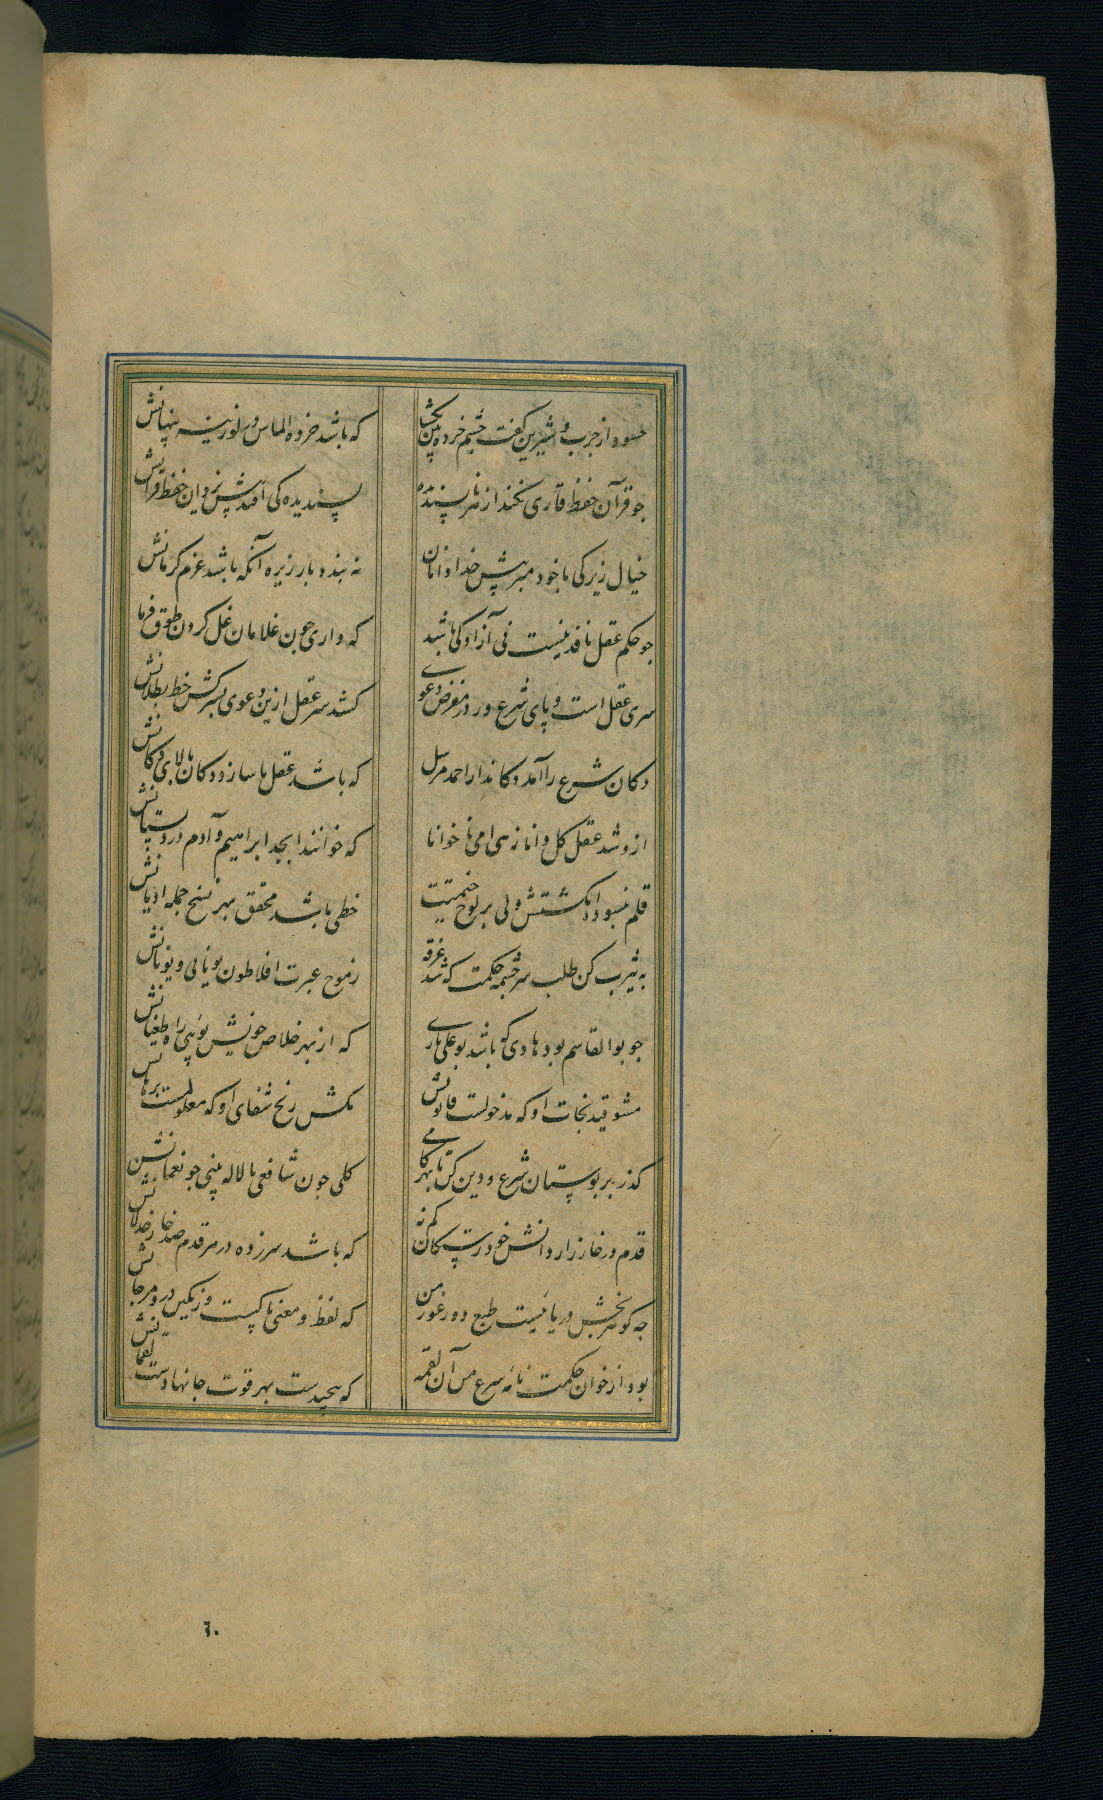 حسود از چرب و شیرین گفت چشم خرده بین بگشا که باشد خرده الماس در لوزینه پنهانش
جو قرآن حفظ قاری نکند از ما پسندیده پسندیده کی افتد پیش یزدان حفظ قرآنش
خیال زیرکی با خود مبر پیش خدا دانان نه بندد بار زیره آنکه باشد عزم کرمانش
جو حکم عقل نافذ نیست فی آزادگی باشد که داری جون غلامان غل کردن طوق فرمانش
سری عقل است و پای شرع ور در معرض دعوی کشد سر عقل ازین دعوی بسر کش خط بطلانش
دکان شرع را آمد دکاندار احمد مرسل که باشد عقل با سازد دکان بالای دکانش
ازو شد عقل کل دانا زهی امی نا خوانا که خوانند ابجد ابراهیم و آدم در دبستانش
قلم نبسوده انگشتش ولی بر لوح ختمیت خطی باشد محقق بهر نسخ جمله ادیانش
به یثرب کن طلب سرچشمه حکمت که شد غرقه ز موج عبرت افلاطون یونانی و یونانش
جو بوالقاسم بود هادی که باشد بوعلی باری که از بهر خلاص خویش پوئی راه طغیانش
مشو قید نجات او که مدخولست قانونش مکش رنج شفای او که معلولست برهانش
کذر بر بوستان شرع و دین کن تا بهر کامی کلی جون شافعی یا لاله بینی جو نعمانش
قدم در خارزار دانش خود رست کان کم نه که باشد سرزده در هر قدم صد خار خذلانش
جه کوهر بخش دریائیست طبع دور غور من که لفظ و معنی پاکیست و رنکین در و مرجانش
بود از خوان حکمت نامه شرع من آن لقمه که بهر قوت جانها
٦٠